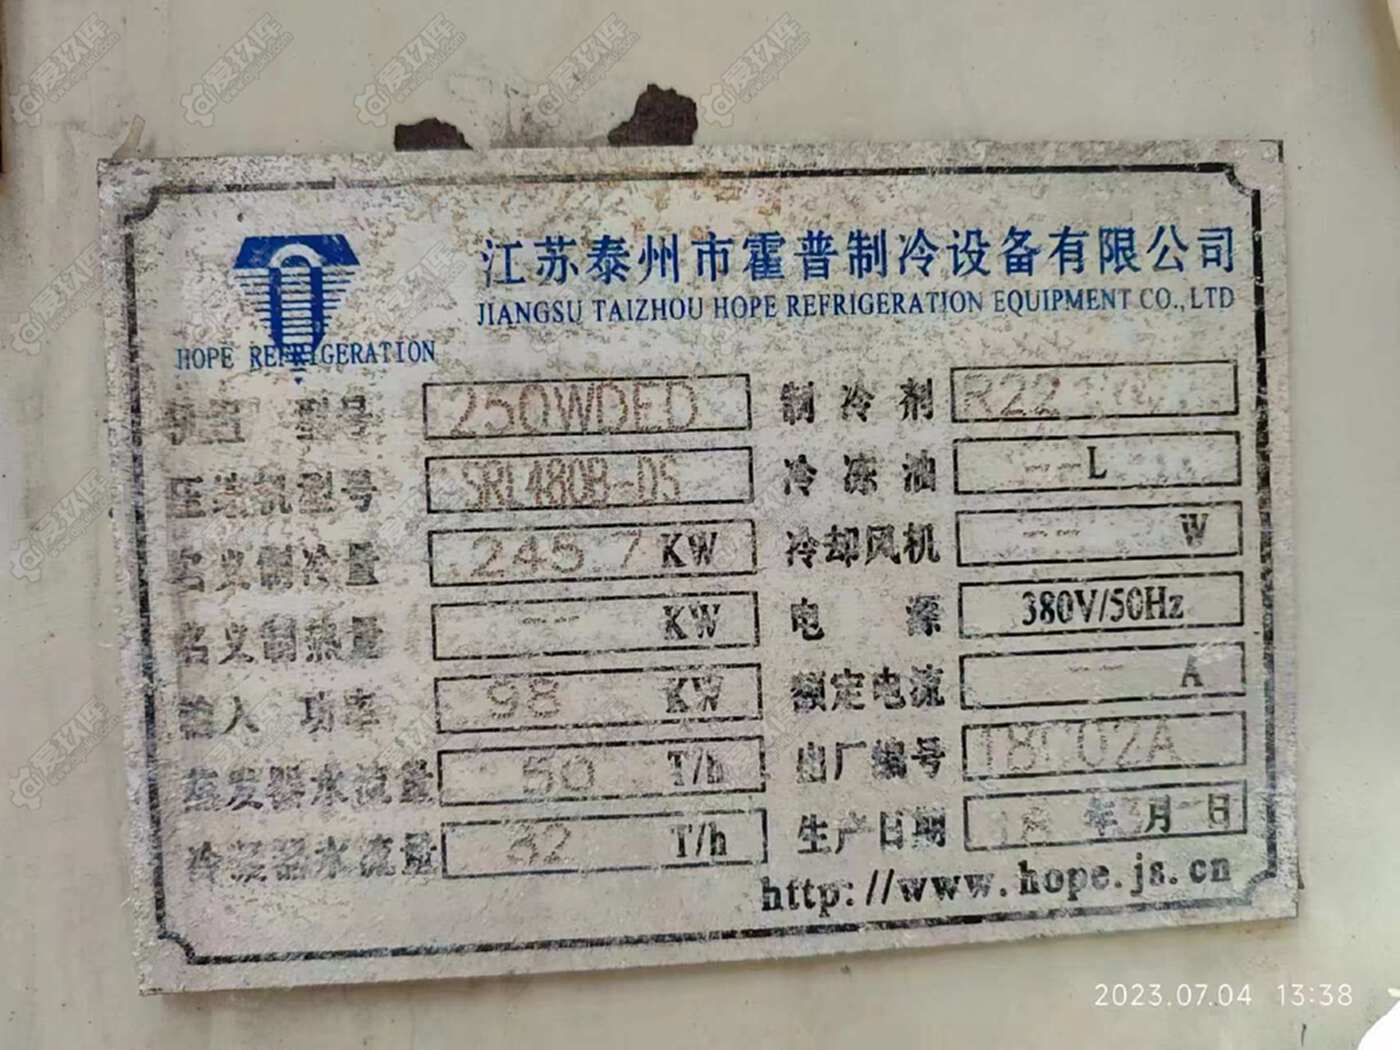 江苏泰州市霍普制冷设备有限公司
JIANGSU TAIZHOU HOPE REFRIGERATION EQUIPMENT CO., LTD
HOPE REFRIGERATION
机组 型号 250WDED 制冷剂 R22
压缩机型号 SRL480B-DS 冷冻油 --L
名义制冷量 245.7 KW 冷却风机 -- W
名义制热量 -- KW 电 源 380V/50Hz
输入 功率 98 KW 额定电流 -- A
蒸发器水流量 50 T/h 出厂编号 18C02A
冷凝器水流量 32 T/h 生产日期 18 年3月 日
http://www.hope.js.cn
2023.07.04 13:38